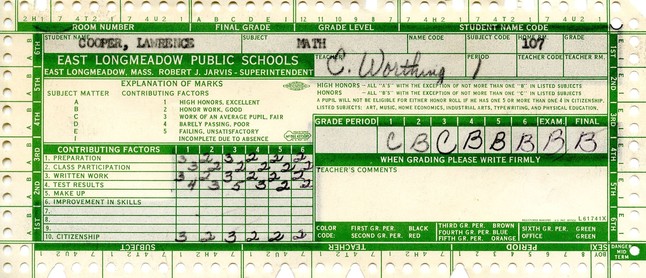 ROOM NUMBER FINAL GRADE GRADE LEVEL STUDENT NAME CODE
STUDENT NAME SUBJECT NAME CODE SUBJECT CODE ROOM NO.
COOPER, LAWRENCE MATH 107
EAST LONGMEADOW PUBLIC SCHOOLS
EAST LONGMEADOW, MASS. ROBERT J. JARVIS - SUPERINTENDENT
TEACHER C. Worthing PERIOD 1 TEACHER CODE
EXPLANATION OF MARKS
SUBJECT MATTER CONTRIBUTING FACTORS
A 1 HIGH HONORS, EXCELLENT
B 2 HONOR WORK, GOOD
C 3 WORK OF AN AVERAGE PUPIL, FAIR
D 4 BARELY PASSING, POOR
E 5 FAILING, UNSATISFACTORY
I INCOMPLETE DUE TO ABSENCE
HIGH HONORS - ALL "A'S" WITH THE EXCEPTION OF NOT MORE THAN ONE "B" IN LISTED SUBJECTS
HONORS - ALL "B'S" WITH THE EXCEPTION OF NOT MORE THAN ONE "C" IN LISTED SUBJECTS
A PUPIL WILL NOT BE ELIGIBLE FOR EITHER HONOR ROLL IF HE HAS ONE 5 OR MORE THAN ONE 4 IN CITIZENSHIP.
LISTED SUBJECTS: ART, MUSIC, HOME ECONOMICS, INDUSTRIAL ARTS, TYPEWRITING, AND PHYSICAL EDUCATION.
GRADE PERIOD 1 2 3 4 5 6 EXAM. FINAL
C B C B B B B B
WHEN GRADING PLEASE WRITE FIRMLY
CONTRIBUTING FACTORS 1 2 3 4 5 6
1. PREPARATION 3 2 3 2 2 2
2. CLASS PARTICIPATION 3 2 2 2 2
3. WRITTEN WORK 3 2 3 2 2 2
4. TEST RESULTS 4 3 5 3 2 2
5. MAKE UP
6. IMPROVEMENT IN SKILLS
7.
8.
9.
10. CITIZENSHIP 3 2 3 2 2 2
TEACHER'S COMMENTS
L61741X
COLOR CODE: FIRST GR. PER. BLACK THIRD GR. PER. BROWN SIXTH GR. PER. GREEN
SECOND GR. PER. RED FOURTH GR. PER. BLUE OFFICE GREEN
FIFTH GR. PER. ORANGE
SUBJECT TEACHER PERIOD SEX
DANGER MID TERM
1ST 2ND 3RD 4TH 5TH 6TH